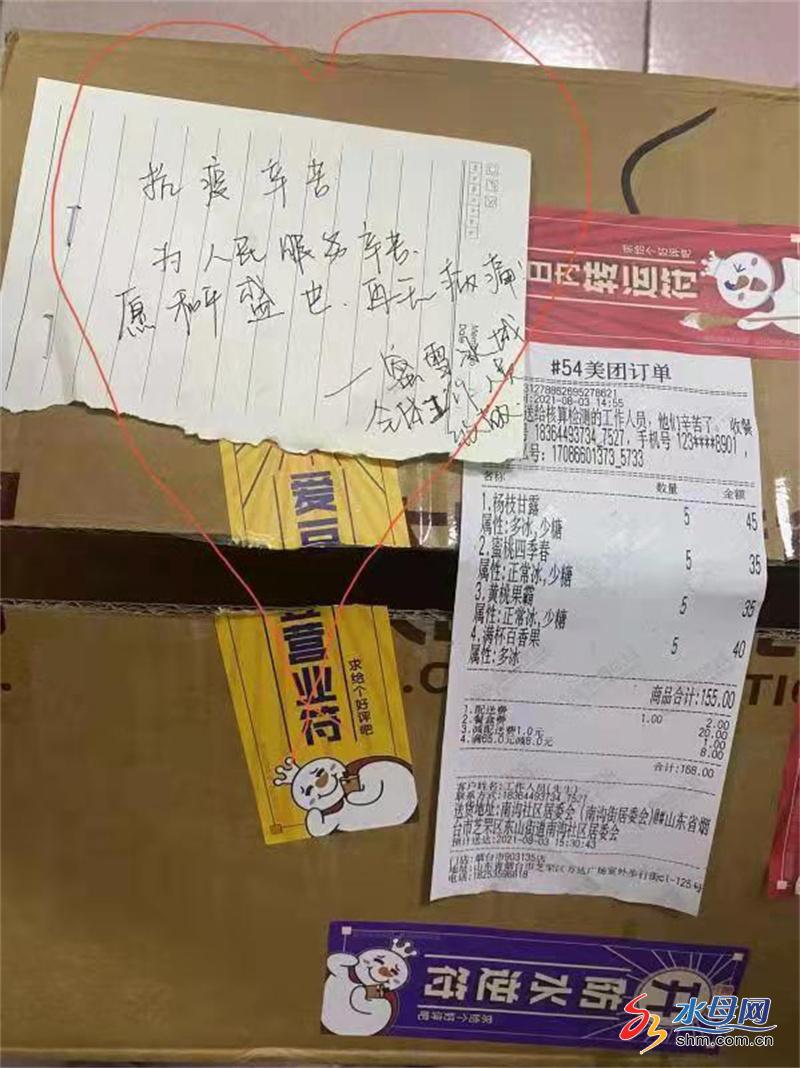 抗疫辛苦
为人民服务辛苦.
愿和平盛世.再无病痛
一蜜雪冰城
全体工作人员
求给个好评吧
日内转运符
#54美团订单
31278862695278621
:2021-08-03 14:55
送给核算检测的工作人员，他们辛苦了。收餐
18364493734_7527，手机号 123****8901，
号：17086601373_5733
名称 数量 金额
1.杨枝甘露 5 45
属性:多冰,少糖
2.蜜桃四季春 5 35
属性:正常冰,少糖
3.黄桃果霸 5 35
属性:正常冰,少糖
4.满杯百香果 5 40
属性:多冰
商品合计:155.00
1.配送费 2.00
2.餐盒费 1.00 20.00
3.减配送费1.0元 1.00
4.满65.0元减8.0元 8.00
合计:168.00
客户姓名:工作人员(先生)
联系方式:18364493734_7527
送货地址:南沟社区居委会（南沟街居委会)@#山东省烟
台市芝罘区东山街道南沟社区居委会
预计送达:2021-08-03 15:30:43
门店:烟台市903135店
地址:山东省烟台市芝罘区万达广场室外步行街c1-125号
电话:18253596818
爱豆
营业符
求给个好评吧
防水逆符
求给个好评吧
水母网
shm.com.cn